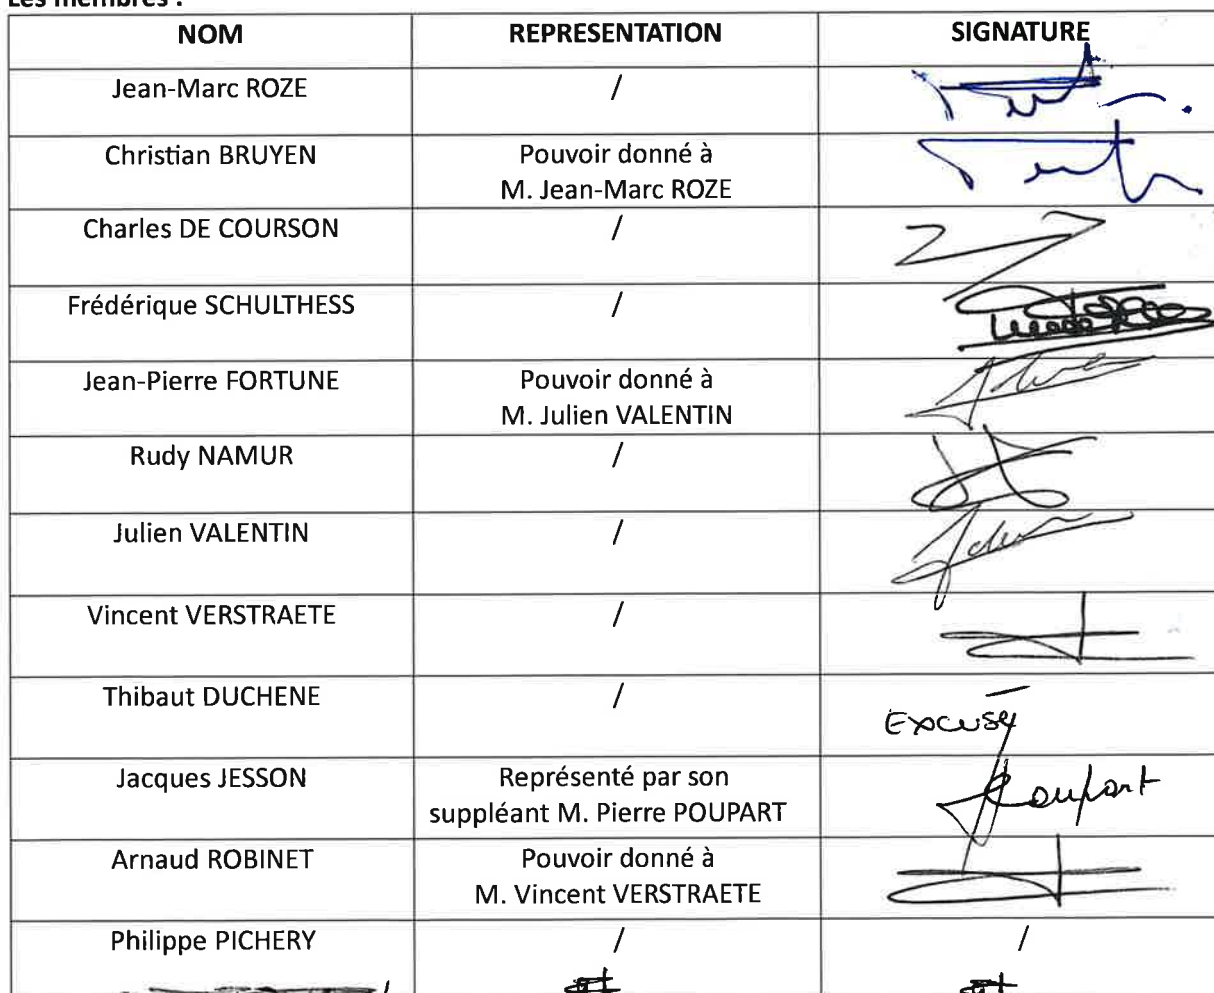 Les membres :
NOM REPRESENTATION SIGNATURE
Jean-Marc ROZE /
Christian BRUYEN Pouvoir donné à
M. Jean-Marc ROZE
Charles DE COURSON /
Frédérique SCHULTHESS /
Jean-Pierre FORTUNE Pouvoir donné à
M. Julien VALENTIN
Rudy NAMUR /
Julien VALENTIN /
Vincent VERSTRAETE /
Thibaut DUCHENE / Excusé
Jacques JESSON Représenté par son
suppléant M. Pierre POUPART Poupart
Arnaud ROBINET Pouvoir donné à
M. Vincent VERSTRAETE
Philippe PICHERY / /